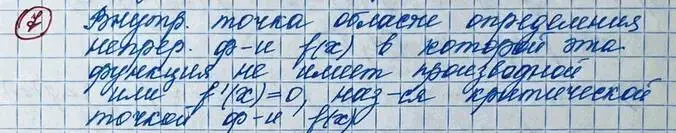 7 Внутр. точка области определения
непрер. ф-и f(x) в которой эта
функция не имеет производной
или f'(x)=0, наз-ся критической
точкой ф-и f(x)